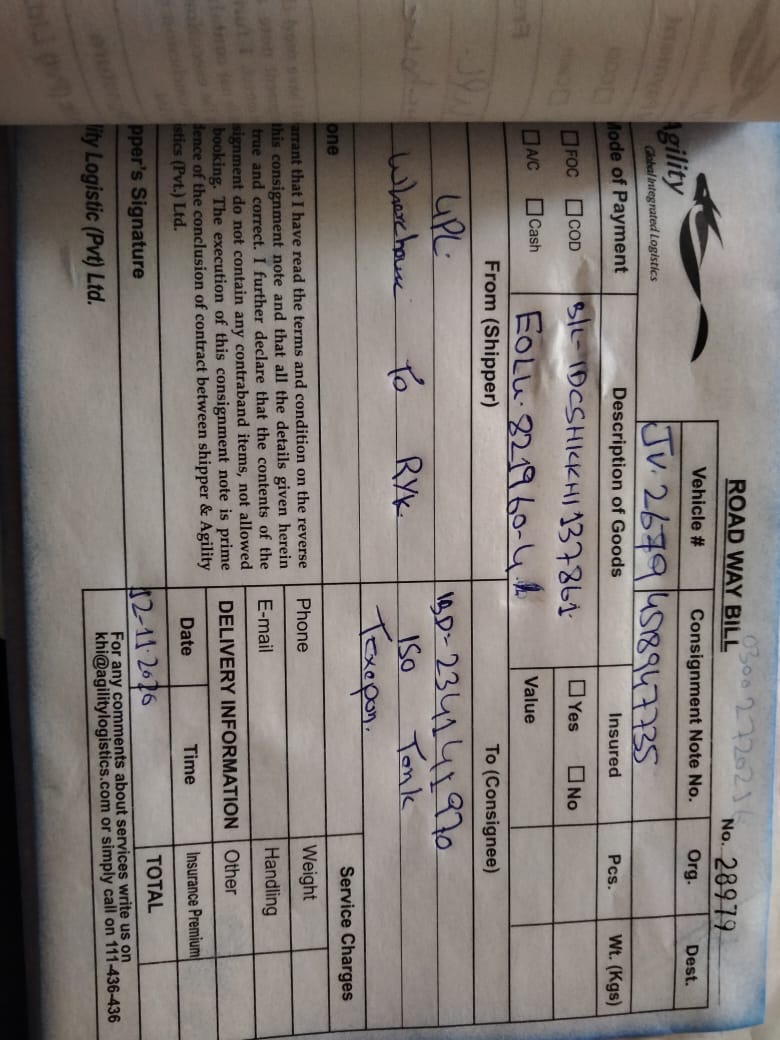 ROAD WAY BILL
No. 28979
Agility
Global Integrated Logistics
Vehicle # Consignment Note No. Org. Dest.
JV. 2679 4518947735
Mode of Payment Description of Goods Insured Pcs. Wt. (Kgs)
FOC COD B/L- IDCSHKKHI137861 Yes No
A/C Cash EOLU. 821960-4 Value
From (Shipper) To (Consignee)
UPL. IBD- 234141970
Wherehouse To RYK ISO Tank
Texepon.
one Service Charges
arrant that I have read the terms and condition on the reverse
this consignment note and that all the details given herein
true and correct. I further declare that the contents of the
signment do not contain any contraband items, not allowed
booking. The execution of this consignment note is prime
dence of the conclusion of contract between shipper & Agility
stics (Pvt.) Ltd.
Phone Weight
E-mail Handling
DELIVERY INFORMATION Other
Date Time Insurance Premium
pper's Signature 12-11-2026 TOTAL
lity Logistic (Pvt) Ltd.
For any comments about services write us on
khi@agilitylogistics.com or simply call on 111-436-436